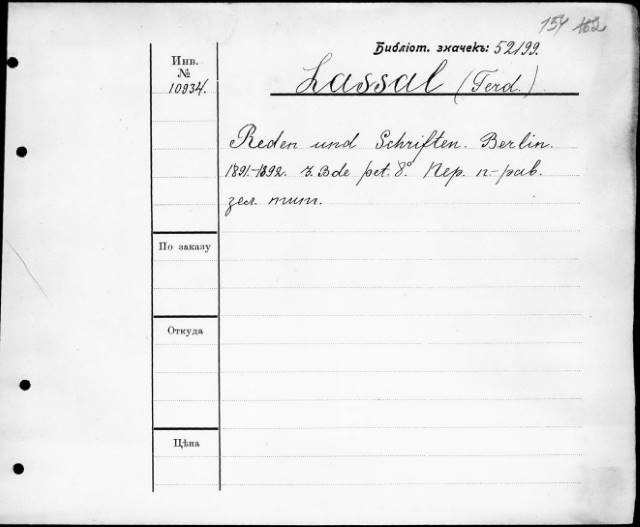 154 162
Библіот. значекъ: 52199.
Инв.
№
10934.
Lassal (Ferd.)
Reden und Schriften. Berlin.
1891.-1892. 3. Bde pet. 8º. Пер. п.-
зел. тит.
По заказу
Откуда
Цѣна